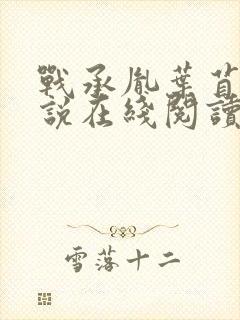 戰承胤葉苜
說在綫閱讀
雪落十二